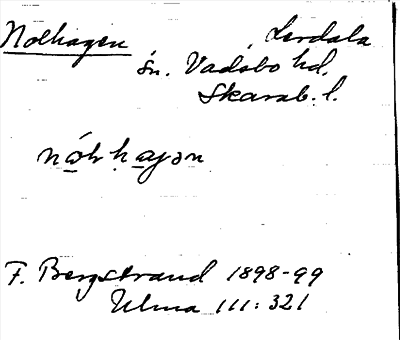 Nolhagen Lerdala
sn. Vadsbo hd.
Skarab. l.
nólhagen
F. Bergstrand 1898-99
Ulma 111:321